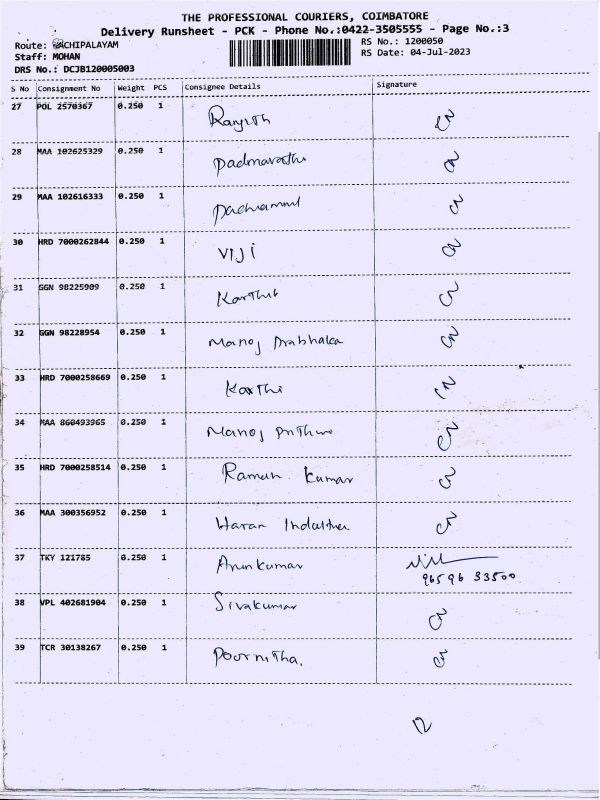 THE PROFESSIONAL COURIERS, COIMBATORE
Delivery Runsheet - PCK - Phone No.:0422-3505555 - Page No.:3
Route: ACHIPALAYAM RS No.: 1200050
Staff: MOHAN RS Date: 04-Jul-2023
DRS No.: DCJB120005003
S No Consignment No Weight PCS Consignee Details Signature
27 POL 2570367 0.250 1 Ranjith
28 MAA 102625329 0.250 1 Padmavathi
29 MAA 102616333 0.250 1
30 HRD 7000262844 0.250 1 VIJI
31 GGN 98225909 0.250 1 Karthik
32 GGN 98228954 0.250 1 Manoj Prabhaka
33 HRD 7000258669 0.250 1 Karthi
34 MAA 860493965 0.250 1 Manoj
35 HRD 7000258514 0.250 1 Raman Kumar
36 MAA 300356952 0.250 1 Haran
37 TKY 121785 0.250 1 Arunkumar
96596 33500
38 VPL 402681904 0.250 1 Sivakumar
39 TCR 30138267 0.250 1 Poornitha.
12